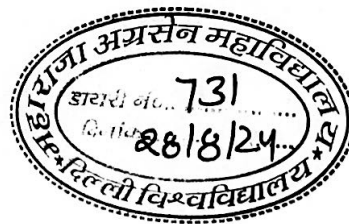 महाराजा अग्रसेन महाविद्यालय
डायरी नं०... 731
दिनांक 28/8/24...
★ दिल्ली विश्वविद्यालय ★